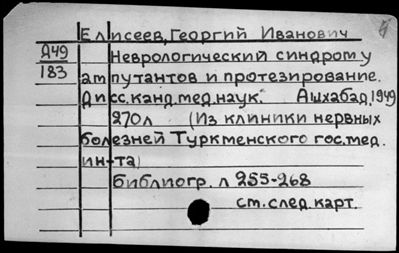 Елисеев, Георгий Иванович
Д49 Неврологический синдром у
183 ампутантов и протезирование.
Дисс. канд. мед. наук. Ашхабад, 1949
270 л (Из клиники нервных
болезней Туркменского гос. мед.
ин-та)
Библиогр. л 255-268
см. след карт.